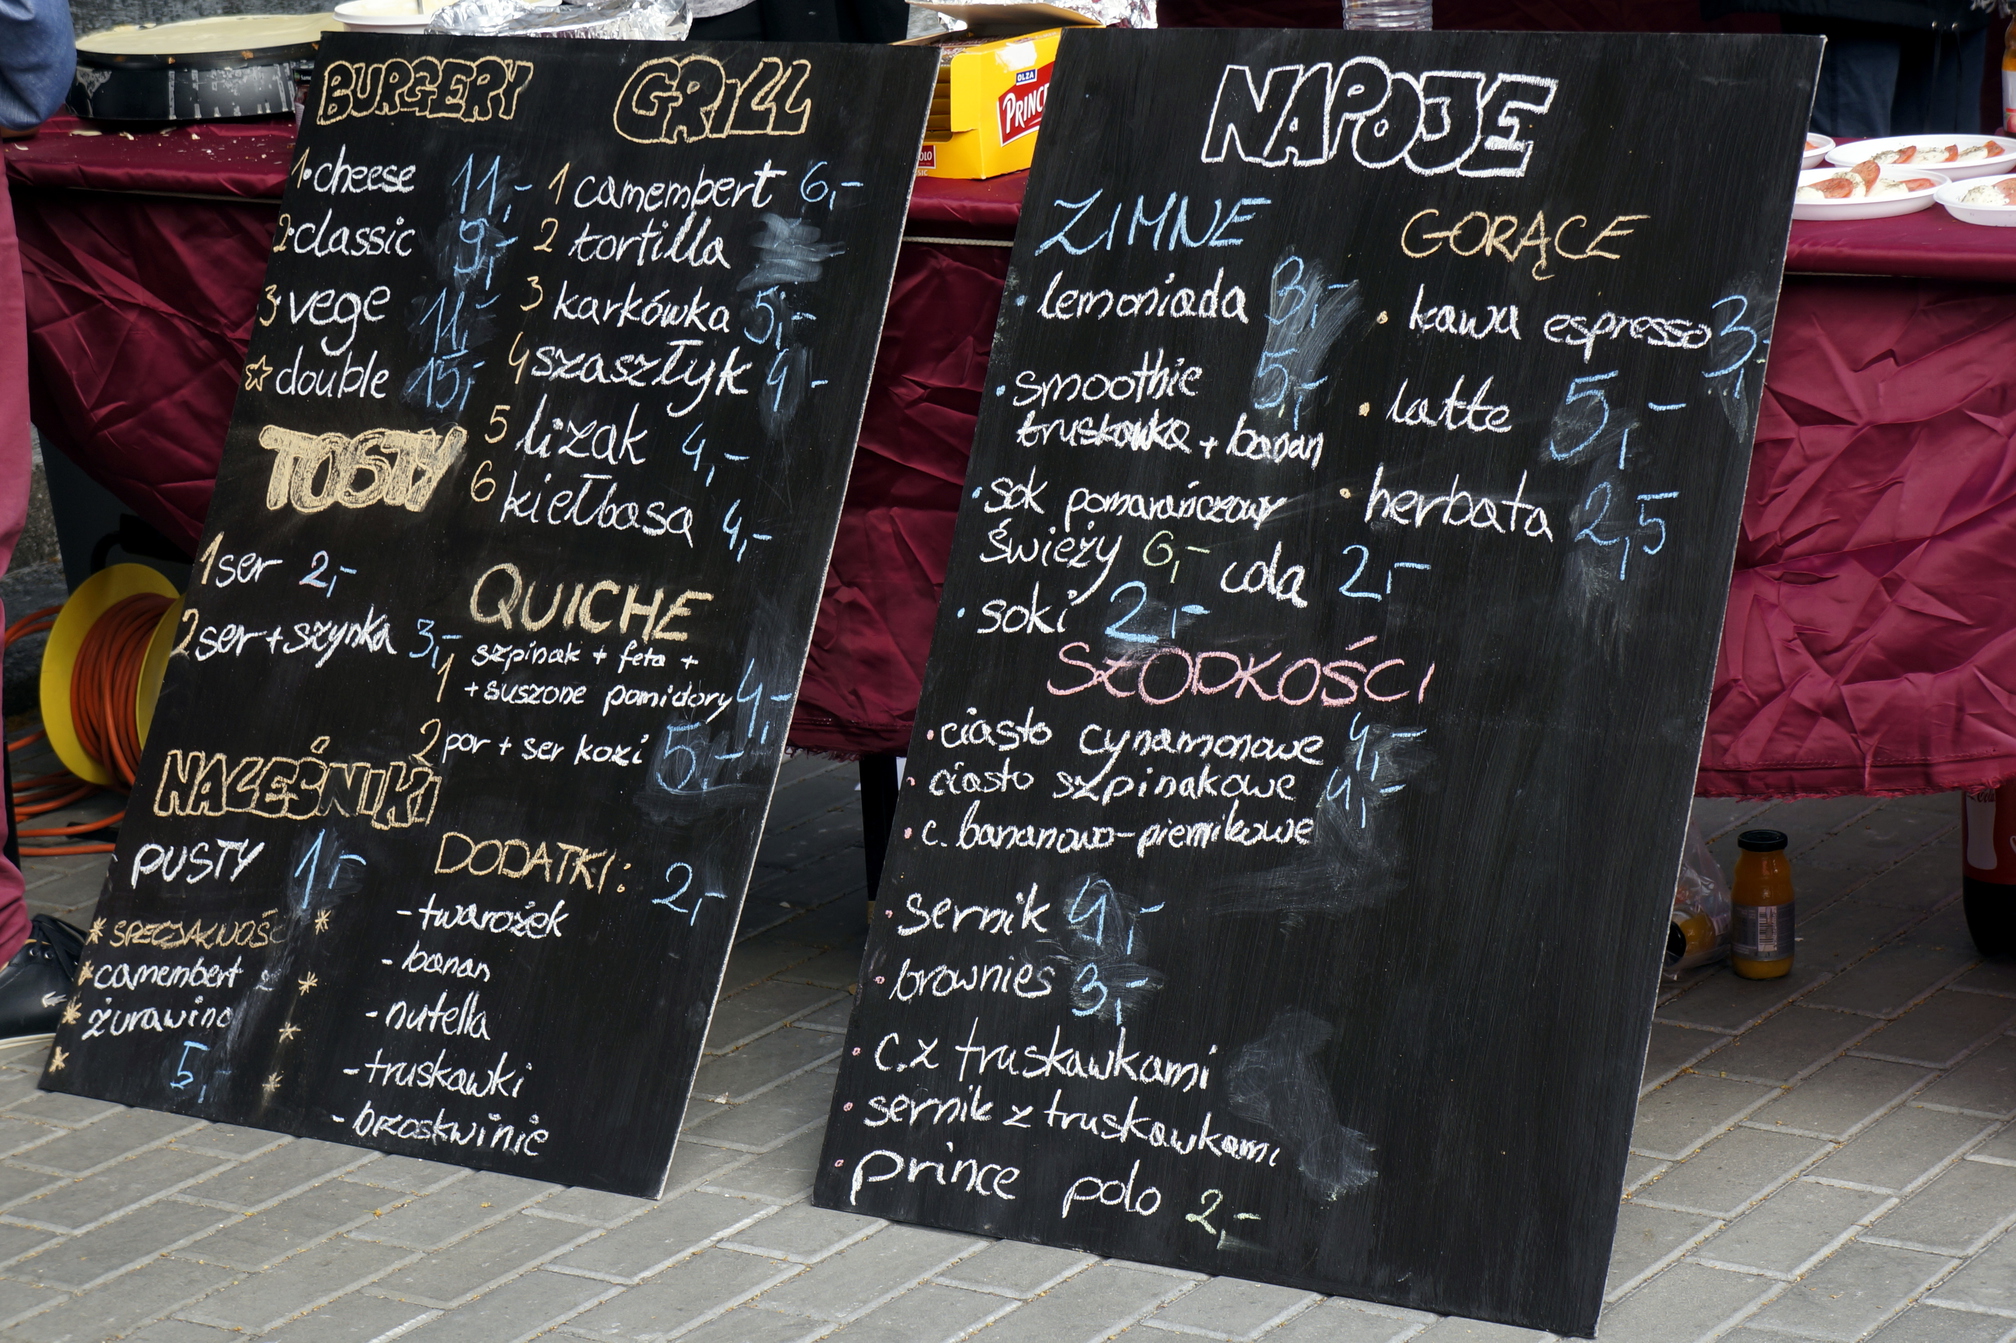 BURGERY
1. cheese 11,-
2. classic 9,-
3. vege 11,-
double 15,-
TOSTY
1 ser 2,-
2 ser + szynka 3,-
NALEŚNIKI
PUSTY 1,-
SPECJALNOŚĆ
camembert z
żurawiną
5,-
GRILL
1 camembert 6,-
2 tortilla
3 karkówka 5,-
4 szaszłyk 4,-
5 lizak 4,-
6 kiełbasa 4,-
QUICHE
szpinak + feta +
1 + suszone pomidory 4,-
2 por + ser kozi 5,-
DODATKI: 2,-
- twarożek
- banan
- nutella
- truskawki
- brzoskwinie
OLZA
NAPOJE
ZIMNE
• lemoniada 3,-
• smoothie 5,-
truskawka + banan
• sok pomarańczowy
świeży 6,-
cola 2,-
• soki 2,-
GORĄCE
• kawa espresso 3,-
• latte 5,-
• herbata 2,5
SŁODKOŚCI
• ciasto cynamonowe 4,-
• ciasto szpinakowe 4,-
• c. bananowo-piernikowe
• sernik 4,-
• brownies 3,-
• c. z truskawkami
• sernik z truskawkami
• prince polo 2,-